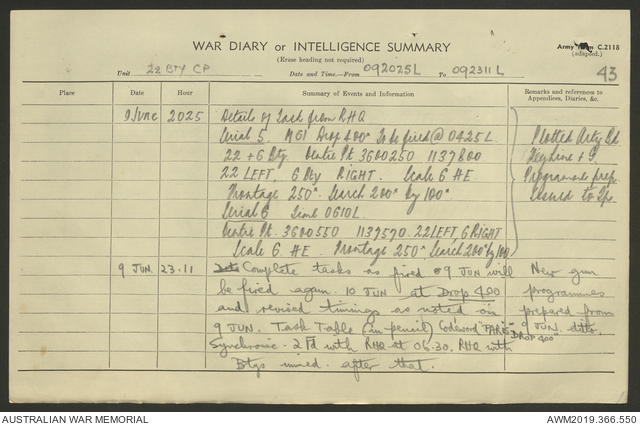 WAR DIARY or INTELLIGENCE SUMMARY
(Erase heading not required)
Army Form C.2118
(adapted.)
Unit 22 BTY CP
Date and Time.—From 092025L To 092311L
43
Place Date Hour Summary of Events and Information Remarks and references to Appendices, Diaries, &c.
9 June 2025 Details of task from RHQ
Serial 5. MG1 Drop 400ˣ To be fired @ 0425L Plotted Arty Bd
22 + 6 Bty. Centre Pt 3600250 1137800
22 LEFT, 6 Bty RIGHT. Scale 6 HE Programme prep.
Frontage 250ˣ. Search 200ˣ by 100ˣ Issued to
Serial 6 Time 0610L
Centre Pt. 3600550 1137570. 22 LEFT 6 RIGHT
Scale 6. HE. Frontage 250ˣ Search 200ˣ by 100
9 JUN. 23.11 Complete tasks as fired 9 JUN will New gun
be fired again. 10 JUN at Drop 400 programmes
and revised timings as noted on prepared from
9 JUN. Task Table (in pencil) Codeword 9 JUN. ditto.
DROP 400"
Synchronise. 2Fd with RHQ at 06.30. RHQ with
Btys after that.
AUSTRALIAN WAR MEMORIAL
AWM2019.366.550